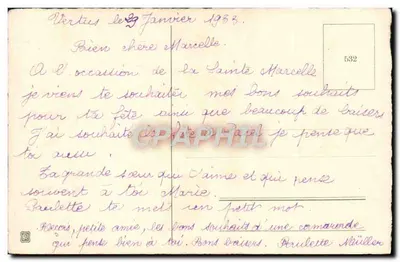 Vertus le 29 Janvier 1933.
Bien chère Marcelle.
A l'occassion de la Sainte Marcelle
je viens te souhaitée mes bons souhaits
pour ta fête ainsi que beaucoup de baisers
J'ai souhaité la fête je pense que
toi aussi.
Ta grande sœur que t'aime et qui pense
souvent à toi Marie.
Paulette te met un petit mot
Reçois, petite amie, les bons souhaits d'une camarade
qui pense bien à toi. Bons baisers. Paulette Müller
532
DELCAMPE